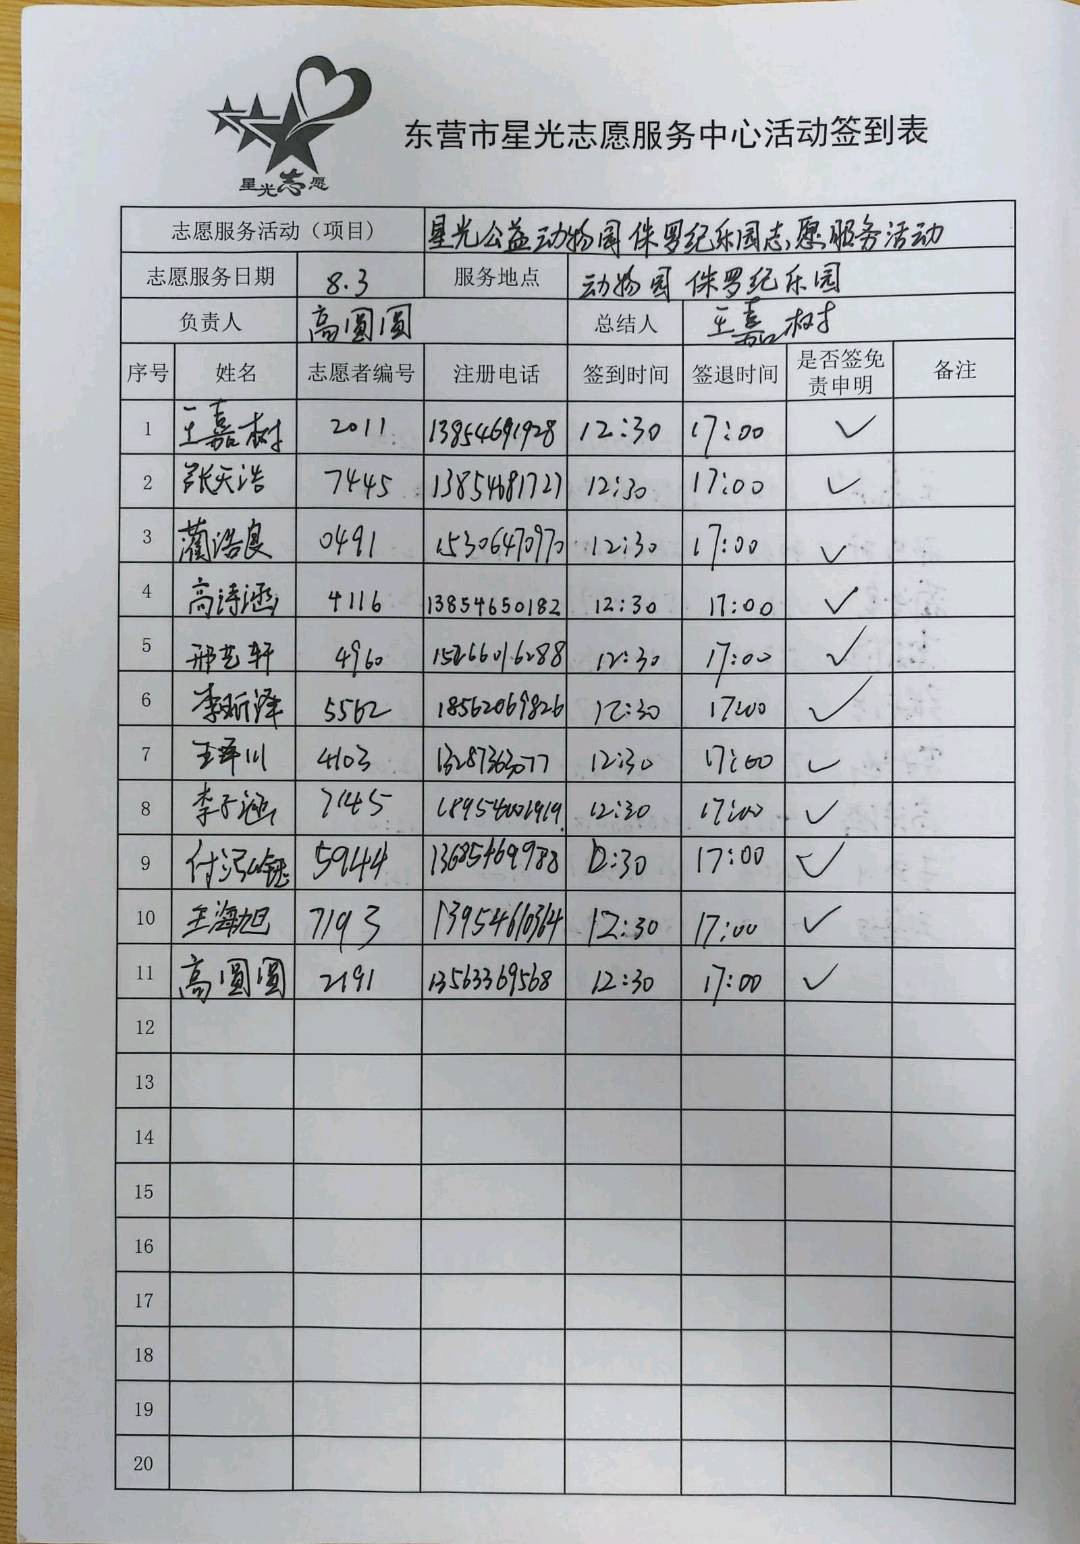 星光志愿
东营市星光志愿服务中心活动签到表
志愿服务活动（项目） 星光公益动物园侏罗纪乐园志愿服务活动
志愿服务日期 8.3 服务地点 动物园 侏罗纪乐园
负责人 高圆圆 总结人 王嘉树
序号 姓名 志愿者编号 注册电话 签到时间 签退时间 是否签免责申明 备注
1 王嘉树 2011 13854691928 12:30 17:00 ✓
2 张天浩 7445 13854681727 12:30 17:00 ✓
3 蔺浩良 0491 15306470970 12:30 17:00 ✓
4 高诗涵 4116 13854650182 12:30 17:00 ✓
5 邢艺轩 4960 15266016288 12:30 17:00 ✓
6 李昕泽 5562 18562069826 12:30 17:00 ✓
7 4103 13287363077 12:30 17:00 ✓
8 李子涵 7145 18954001919 12:30 17:00 ✓
9 付泓钰 5944 13685469988 12:30 17:00 ✓
10 王海旭 7193 13954610364 12:30 17:00 ✓
11 高圆圆 2191 13563369568 12:30 17:00 ✓
12
13
14
15
16
17
18
19
20